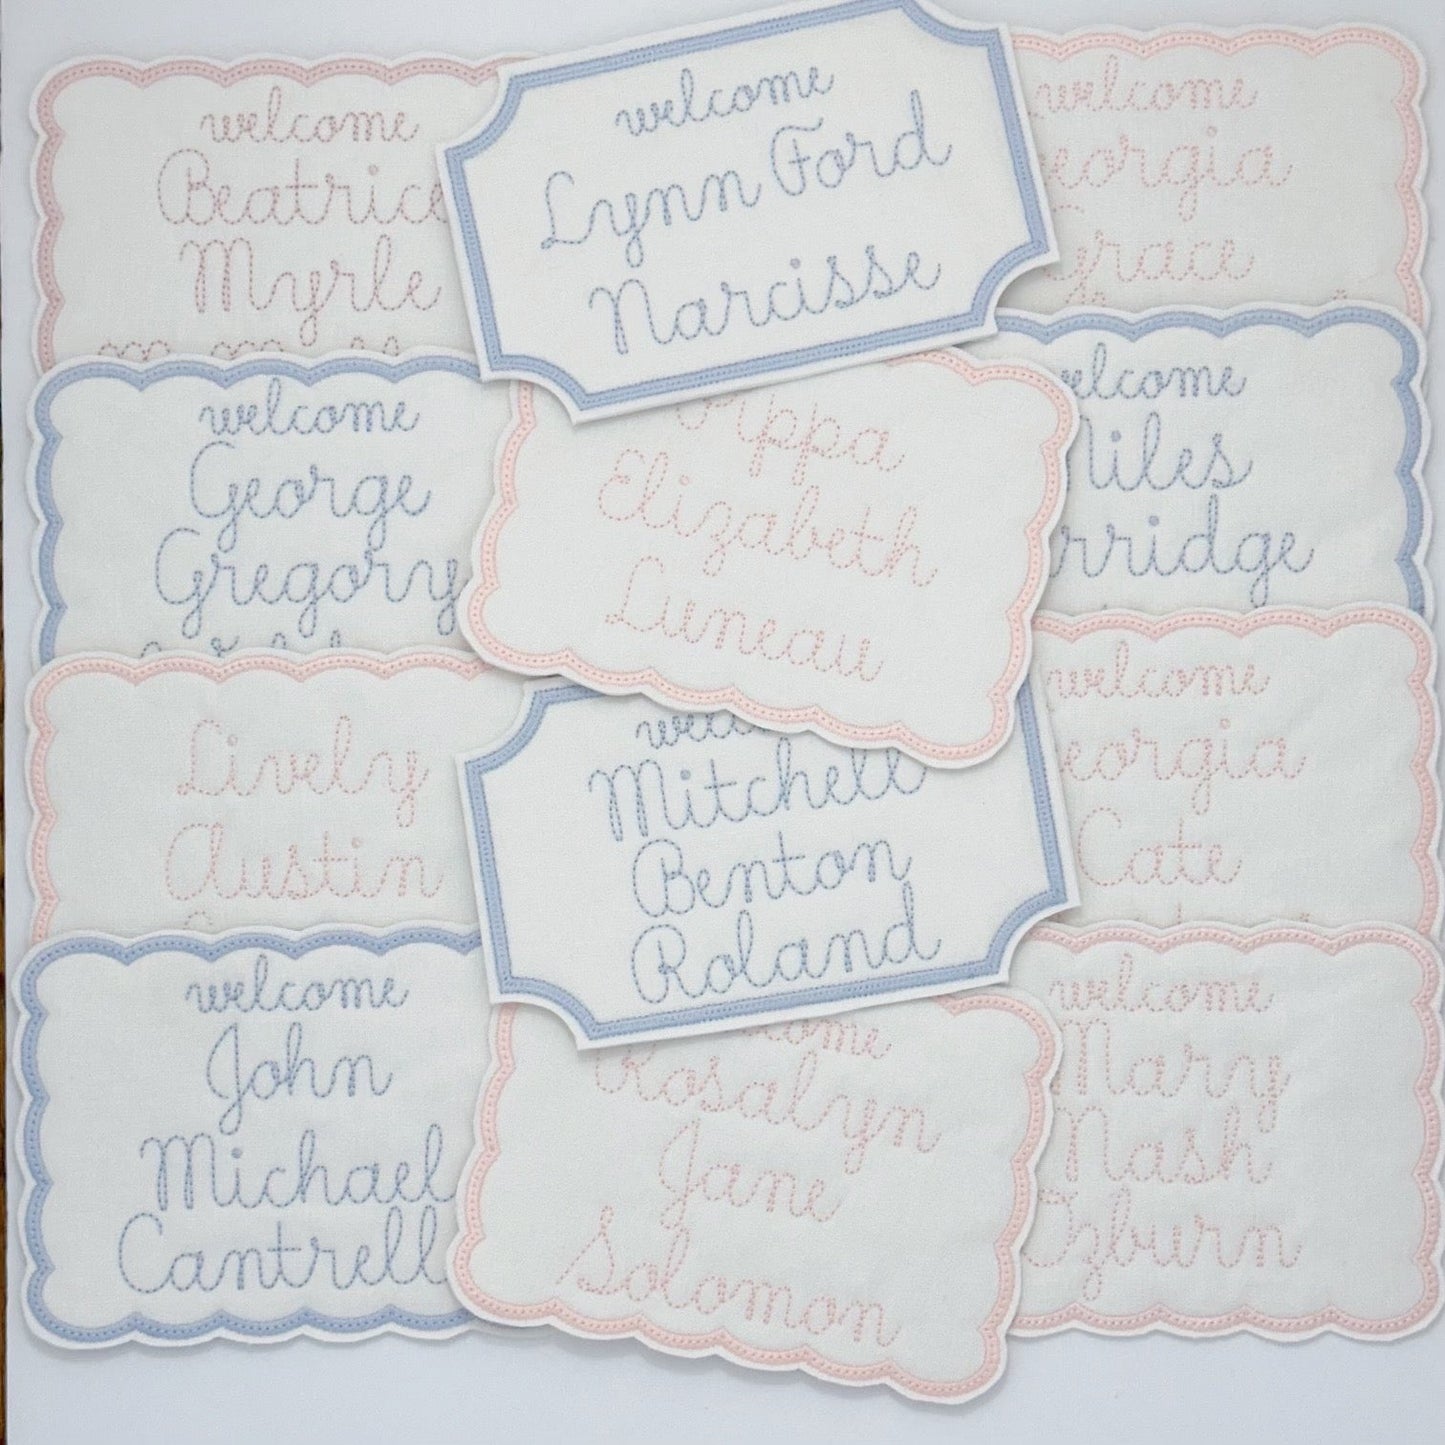 welcome
Beatrice
Myrle
welcome
Lynn Ford
Narcisse
welcome
Georgia
Grace
welcome
George
Gregory
Pippa
Elizabeth
Luneau
welcome
Miles
Lively
Austin
welcome
Mitchell
Benton
Roland
welcome
Georgia
Cate
welcome
John
Michael
Cantrell
welcome
Rosalyn
Jane
Solomon
welcome
Mary
Nash
Ozburn